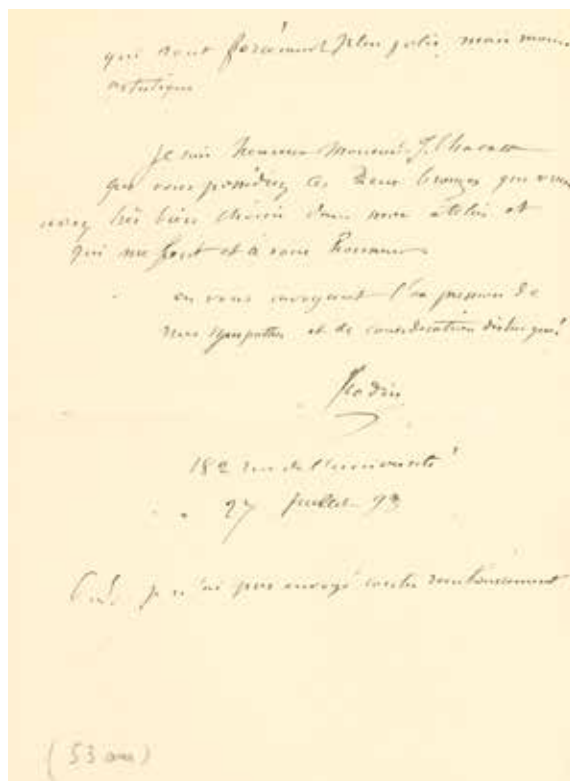 qui sont forcément plus jolis mais moins
artistique
je suis heureux Monsieur
que vous possédiez les deux bronzes que vous
avez très bien choisis dans mon atelier et
qui me font et à vous honneur
en vous envoyant l'expression de
mes sympathies et de considération distinguée
Rodin
182 rue de l'université
27 juillet 93
je n'ai pas envoyé contre remboursement
(53 ans)